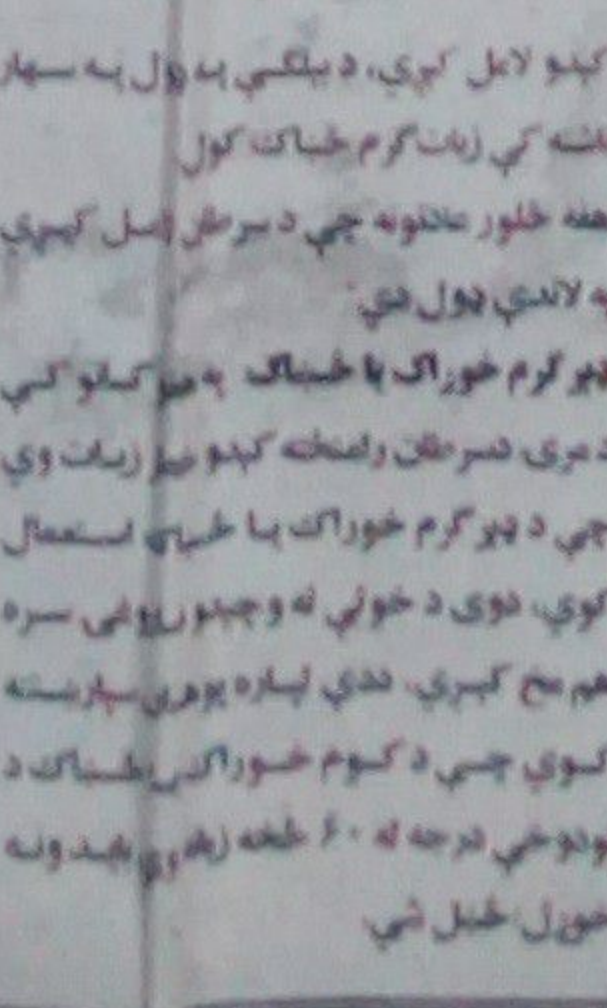 کېدو لامل کېږي، د بېلګې په ډول په سهار
ناشته کې زيات ګرم څښاک کول
هغه څلور عادتونه چې د سرطان لامل کېږي
په لاندې ډول دي
ډېر ګرم خوراک يا څښاک په کسانو کې
د مرۍ د سرطان رامنځته کېدو زيات وي
چې د ډېر ګرم خوراک يا څښاک استعمال
کوي، دوی د خولې له سره
هم مخ کېږي، ددې لپاره پوهان سپارښتنه
کوي چې د کوم خوراک څښاک د
تودوخې درجه له ۶۰ څخه زياته وي بايد ونه
خوړل څښل شي